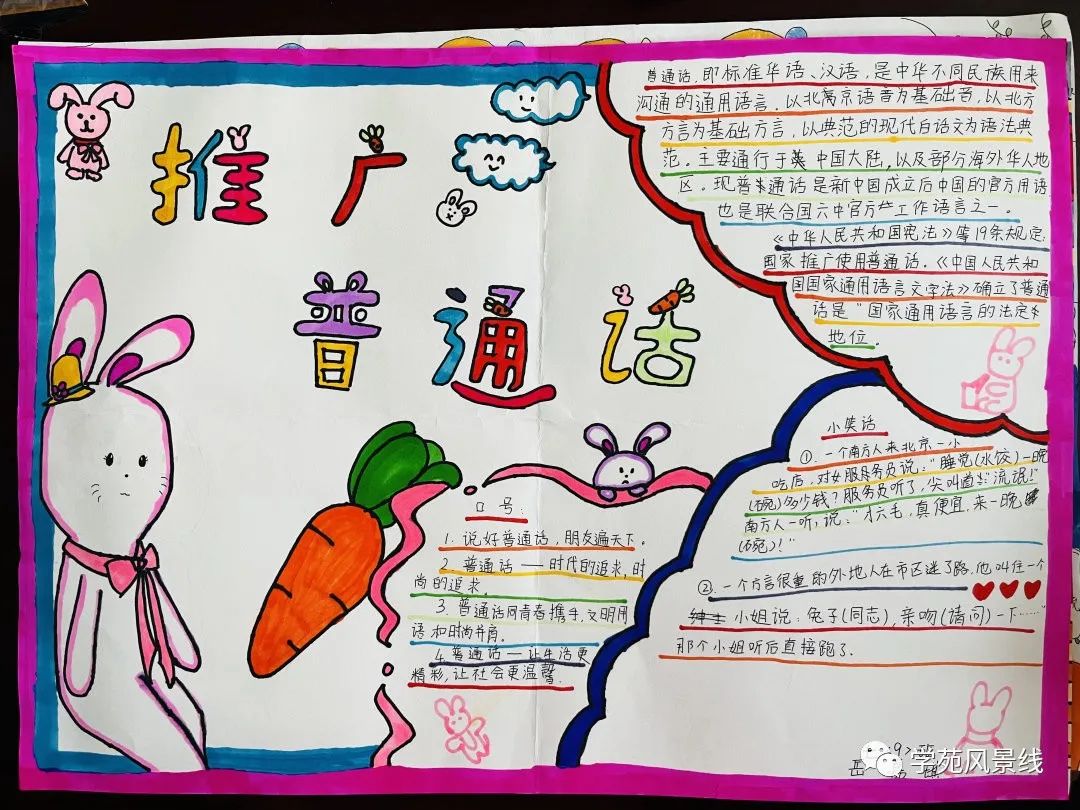 推广
普通话
普通话，即标准华语、汉语，是中华不同民族用来
沟通的通用语言，以北京语音为基础音，以北方
方言为基础方言，以典范的现代白话文为语法典
范。主要通行于中国大陆，以及部分海外华人地
区。现普通话是新中国成立后中国的官方用语
也是联合国六中官方工作语言之一。
《中华人民共和国宪法》等19条规定：
国家推广使用普通话。《中国人民共和
国国家通用语言文字法》确立了普通
话是“国家通用语言的法定
地位。
口号：
1. 说好普通话，朋友遍天下。
2. 普通话——时代的追求，时
尚的追求。
3. 普通话同青春携手，文明用
语和时尚并肩。
4. 普通话——让生活更
精彩，让社会更温馨。
小笑话
①. 一个南方人来北京一小
吃店，对女服务员说：“睡觉(水饺)一晚
(碗)多少钱？服务员听了，尖叫道：“流氓！”
南方人一听，说：“才六毛，真便宜，来一晚
(碗)！”
②. 一个方言很重的外地人在市区迷了路，他叫住一个
小姐说：兔子(同志)，亲吻(请问)一下……”
那个小姐听后直接跑了.
学苑风景线